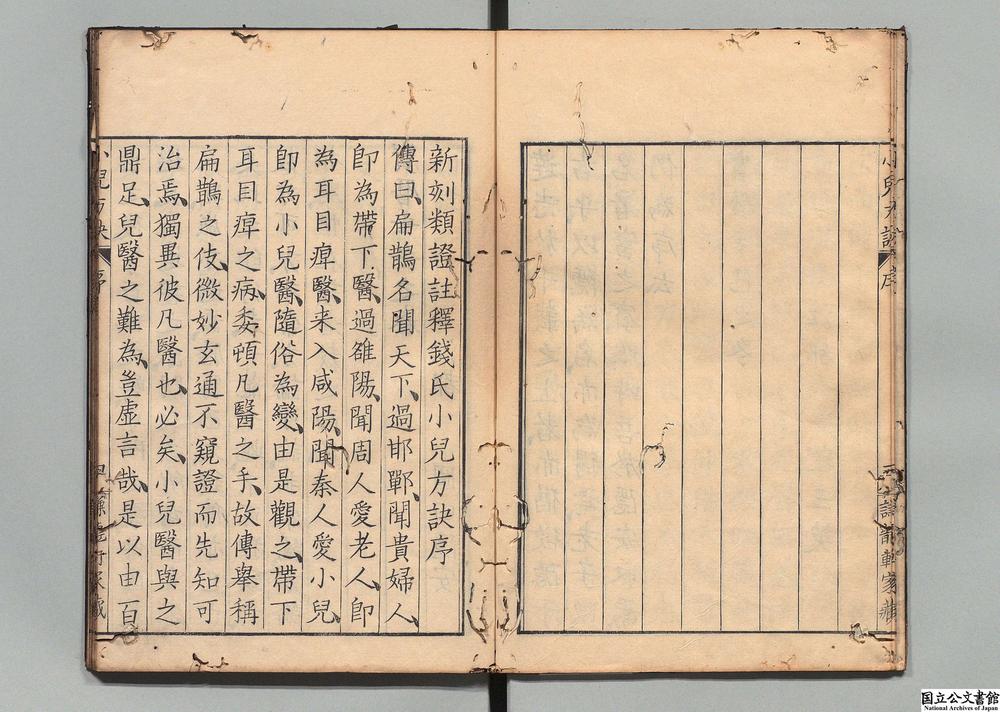 新刻類證註釋錢氏小兒方訣序
傳曰扁鵲名聞天下過邯鄲聞貴婦人
卽為帶下醫過雒陽聞周人愛老人卽
為耳目痺醫来入咸陽聞秦人愛小兒
卽為小兒醫隨俗為變由是觀之帶下
耳目痺之病委頓凡醫之手故傳舉稱
扁鵲之伎微妙玄通不窺證而先知可
治焉獨異彼凡醫也必矣小兒醫與之
鼎足兒醫之難為豈虛言哉是以由百
小兒方訣 序
小兒方訣 序
家藏
国立公文書館
National Archives of Japan